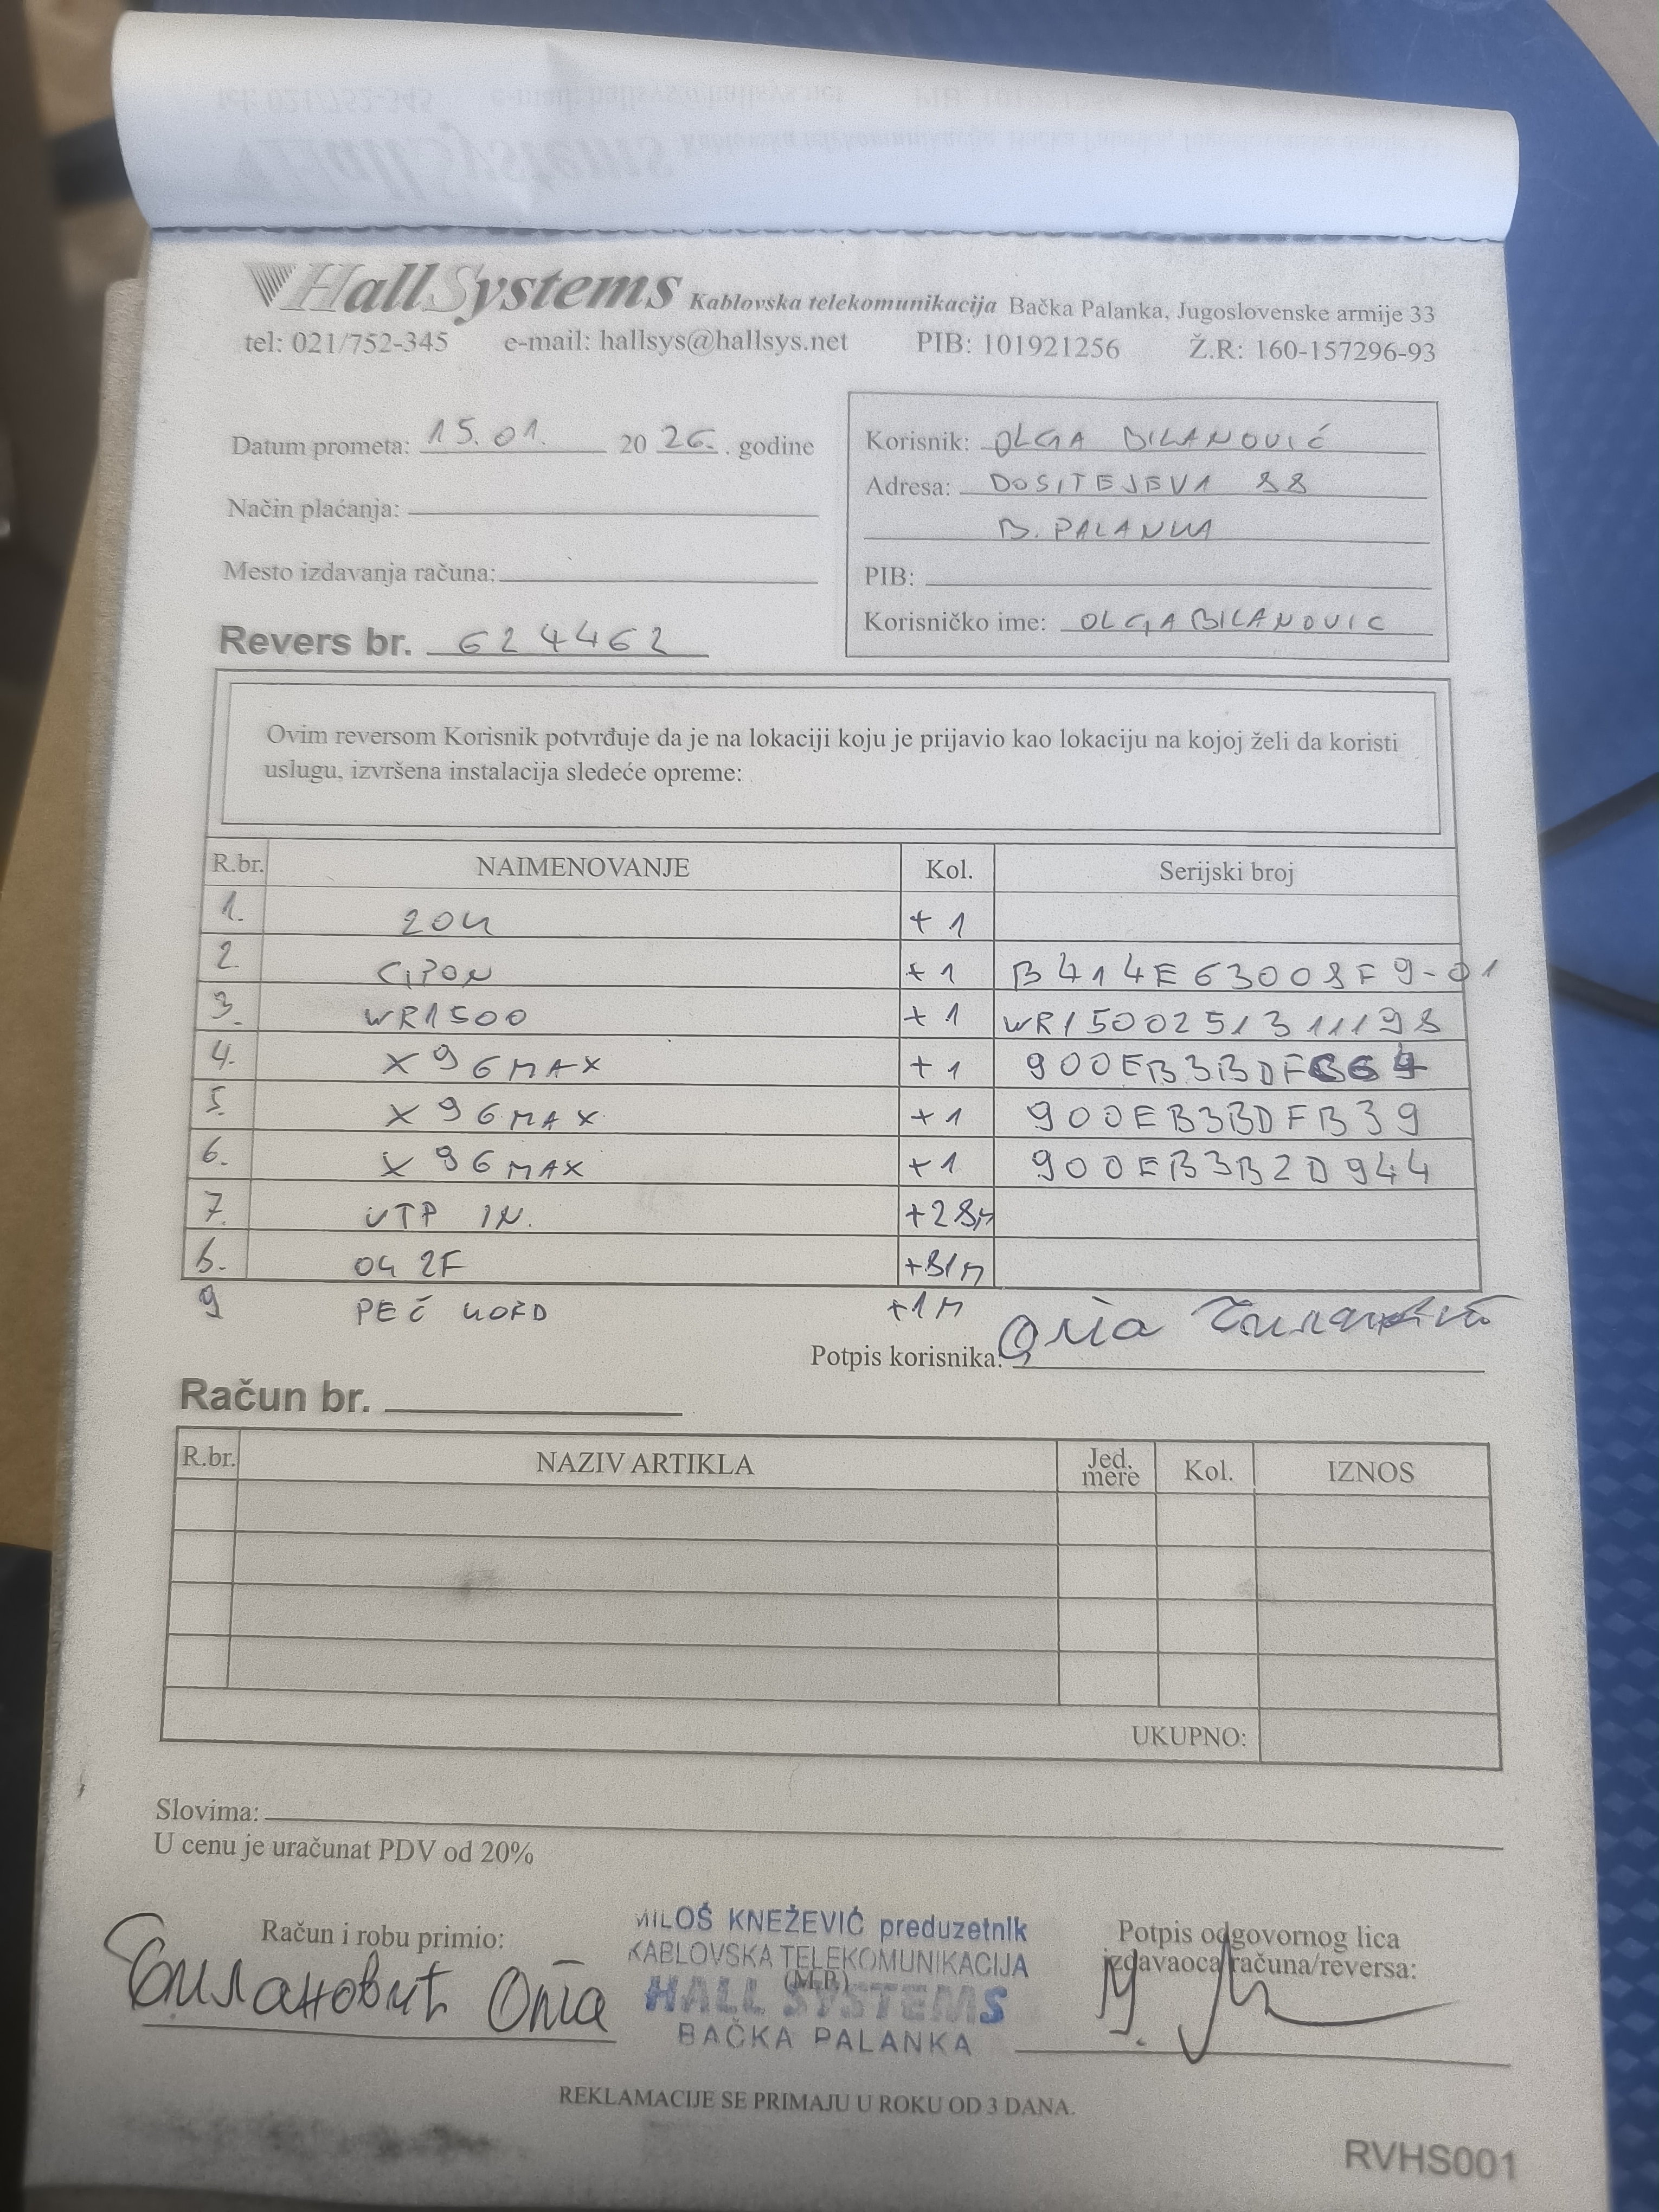 HallSystems Kablovska telekomunikacija Bačka Palanka, Jugoslovenske armije 33
tel: 021/752-345 e-mail: hallsys@hallsys.net PIB: 101921256 Ž.R: 160-157296-93
Datum prometa: 15.01. 2026. godine
Način plaćanja:
Mesto izdavanja računa:
Revers br. 624462
Korisnik: OLGA BILANOVIĆ
Adresa: DOSITEJEVA 88
B. PALANKA
PIB:
Korisničko ime: OLGABILANOVIC
Ovim reversom Korisnik potvrđuje da je na lokaciji koju je prijavio kao lokaciju na kojoj želi da koristi
uslugu, izvršena instalacija sledeće opreme:
R.br. NAIMENOVANJE Kol. Serijski broj
1. ZOK +1
2. GPON +1 B414E63008F9-01
3. WR1500 +1 WR1500251311198
4. X96MAX +1 900EB3BDF
5. X96MAX +1 900EB3BDFB39
6. X96MAX +1 900EB3B2D944
7. UTP IN. +28M
8. OK 2F +81M
9 PEČ KORD +1M
Potpis korisnika:
Račun br.
R.br. NAZIV ARTIKLA Jed. mere Kol. IZNOS
UKUPNO:
Slovima:
U cenu je uračunat PDV od 20%
Račun i robu primio:
Билановић Олга
MILOŠ KNEŽEVIĆ preduzetnik
KABLOVSKA TELEKOMUNIKACIJA
(M.P.)
HALL SYSTEMS
BAČKA PALANKA
Potpis odgovornog lica
izdavaoca računa/reversa:
REKLAMACIJE SE PRIMAJU U ROKU OD 3 DANA.
RVHS001